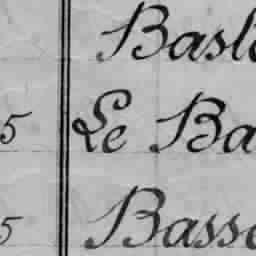 Basle
5 Le Ba
5 Basse